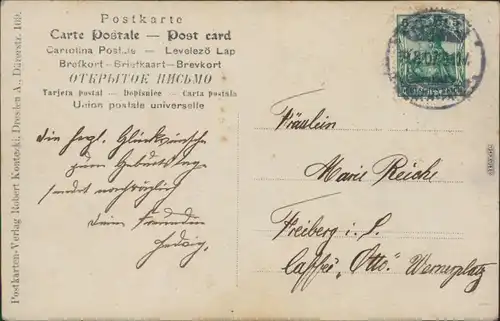 Postkarte
Carte Postale — Post card
Cartolina Postale — Levelező Lap
Brefkort—Briefkaart—Brevkort
ОТКРЫТОЕ ПИСЬМО
Tarjeta postal — Dopisnice — Carta postala
Union postale universelle
Postkarten-Verlag Robert Kontecki, Dresden A., Dürerstr. 109.
die herzl. Glückwünsche
zum Geburtstage
sendet nachträglich
Deine Freundin
Hedwig.
Fräulein
Marie Reichs
Freiberg i. S.
Caffee „Otto“ Wernerplatz